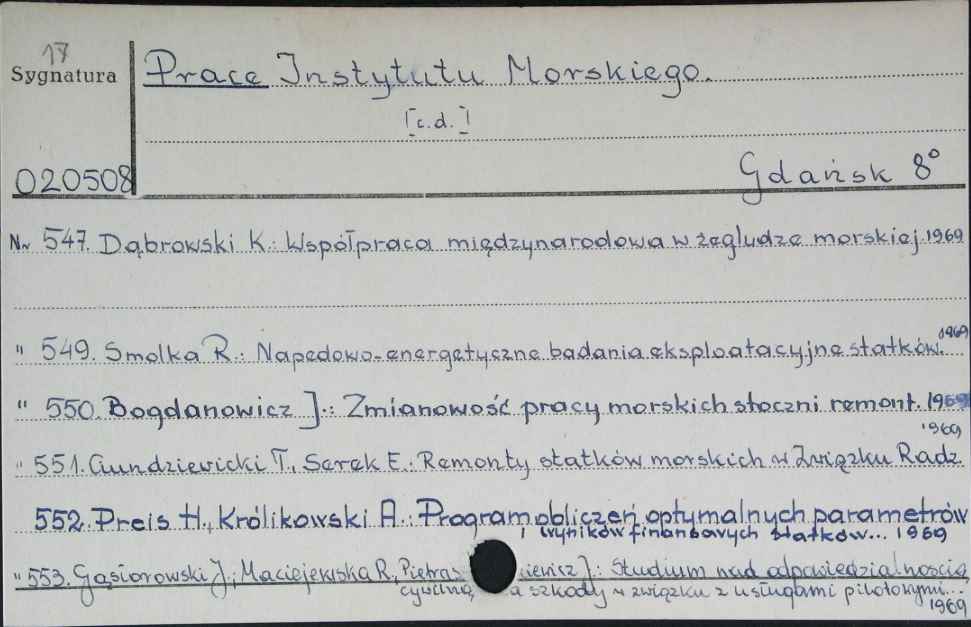 17
Sygnatura
Prace Instytutu Morskiego.
[c.d.]
020508
Gdańsk 8°
Nr 547. Dąbrowski K.: Współpraca międzynarodowa w żegludze morskiej. 1969
" 549. Smolka R.: Napędowo-energetyczne badania eksploatacyjne statków. 1969
" 550. Bogdanowicz J.: Zmianowość pracy morskich stoczni remont. 1969
1969
" 551. Gundziewicki T., Serek E.: Remonty statków morskich w Związku Radz.
552. Preis H., Królikowski A.: Program obliczeń optymalnych parametrów
i wyników finansowych statków... 1969
" 553. Gąsiorowski J., Maciejewska R., Pietras iewicz J.: Studium nad odpowiedzialnością
cywilną a szkody w związku z usługami pilotowymi...
1969